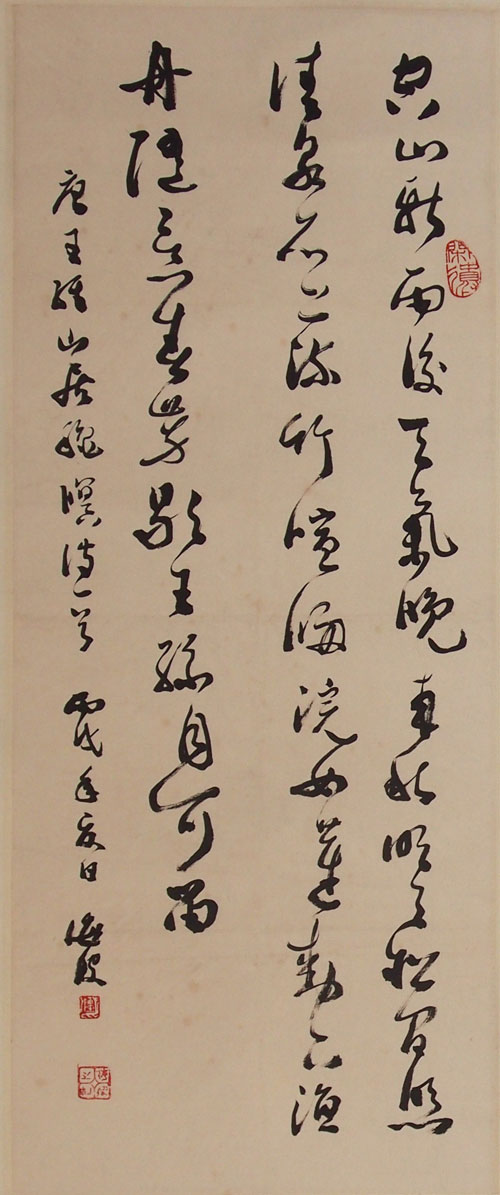 空山新雨後天氣晚來秋明月松間照
清泉石上流竹喧歸浣女蓮動下漁
舟隨意春芳歇王孫自可留
唐王維山居秋暝詩一首 丙戌年夏日